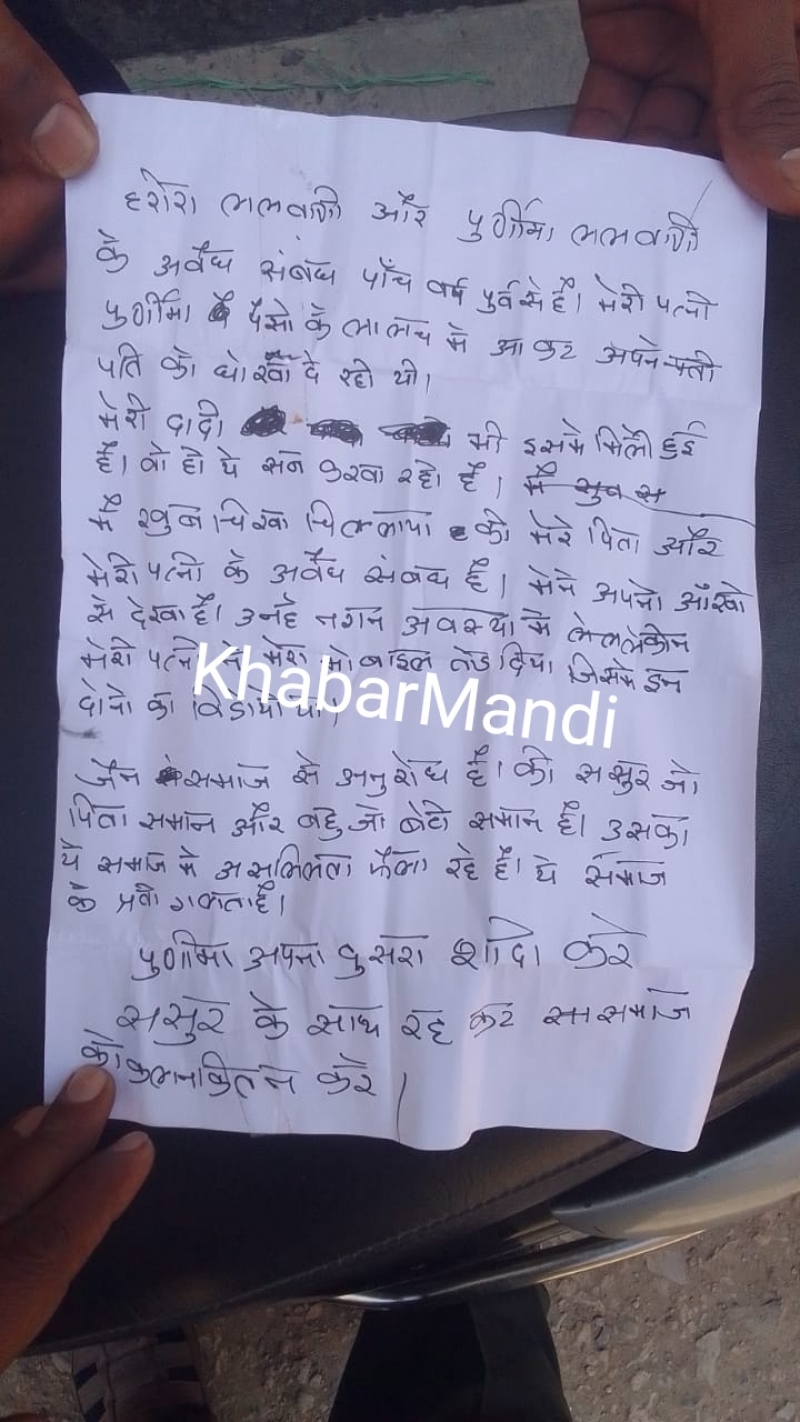 और पुर्णीमा
के अवैध संबंध पाँच वर्ष पुर्व से है। मेरी पत्नी
पुर्णीमा पैसो के लालच मे आकर अपने पती
पति को धोखा दे रही थी।
मेरी दादी भी इसमे मिली हुई
है। वो ही ये सब करवा रही है। मै खुब स
मै खुब चिखा चिल्लाया की मेरे पिता और
मेरी पत्नी के अवैध संबंध है। मेने अपनी आँखो
से देखा है। उनहे नगन अवस्था मे लेकीन
मेरी पत्नी ने मेरा मोबाइल तोड दिया जिसमे इन
दोनो का विडीयो था।
KhabarMandi
जैन समाज से अनुरोध है। की ससुर जो
पिता समान और बहु जो बेटी समान है। उसका
ये समाज मे असलिलता फैला रहे है। ये समाज
के प्रती गलत है।
पुर्णीमा अपना दुसरा शादी करे
ससुर के साथ रह कर समाज
को कलनकित न करे।